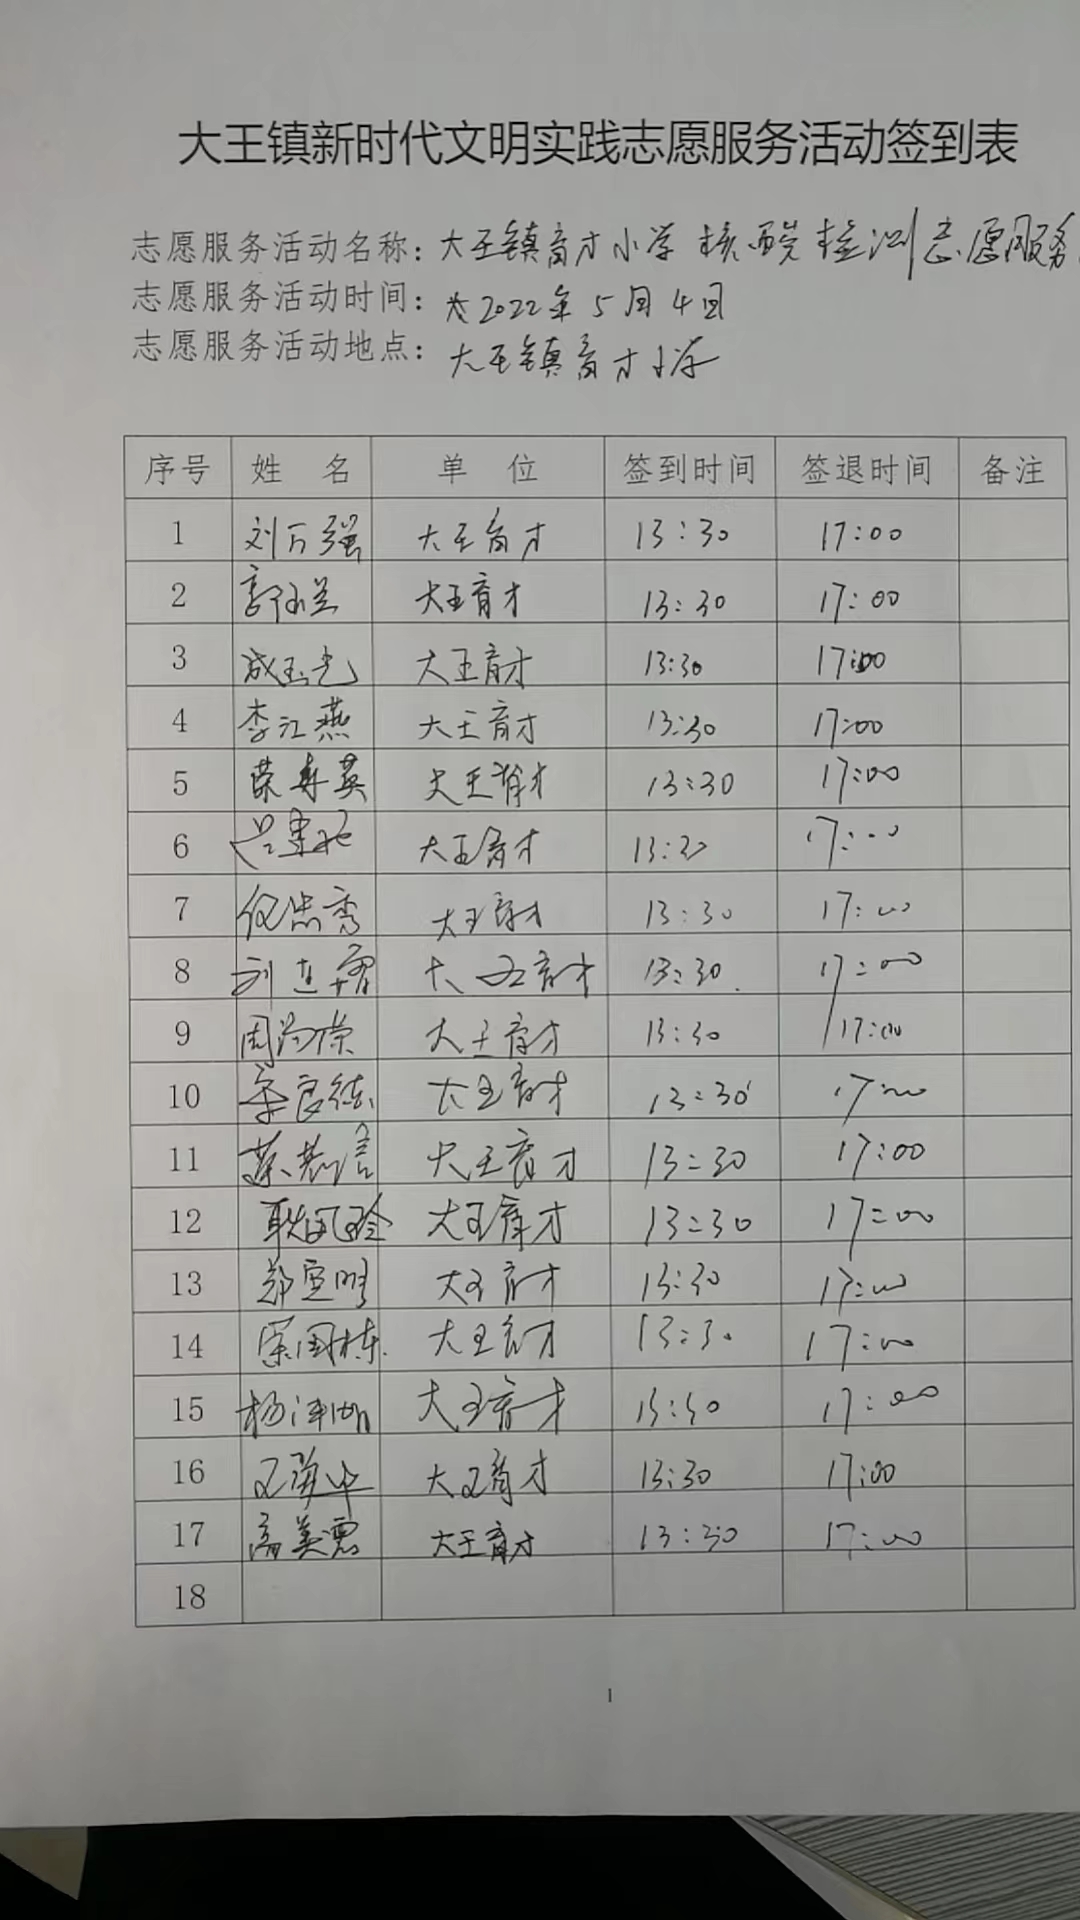 大王镇新时代文明实践志愿服务活动签到表
志愿服务活动名称：大王镇育才小学核酸检测志愿服务
志愿服务活动时间：2022年5月4日
志愿服务活动地点：大王镇育才小学
序号 姓 名 单 位 签到时间 签退时间 备注
1 刘万强 大王育才 13:30 17:00
2 大王育才 13:30 17:00
3 成玉光 大王育才 13:30 17:00
4 李江燕 大王育才 13:30 17:00
5 荣寿英 大王育才 13:30 17:00
6 大王育才 13:30 17:00
7 大王育才 13:30 17:00
8 大王育才 13:30 17:00
9 大王育才 13:30 17:00
10 大王育才 13:30 17:00
11 大王育才 13:30 17:00
12 大王育才 13:30 17:00
13 大王育才 13:30 17:00
14 大王育才 13:30 17:00
15 大王育才 13:30 17:00
16 大王育才 13:30 17:00
17 高美云 大王育才 13:30 17:00
18
1